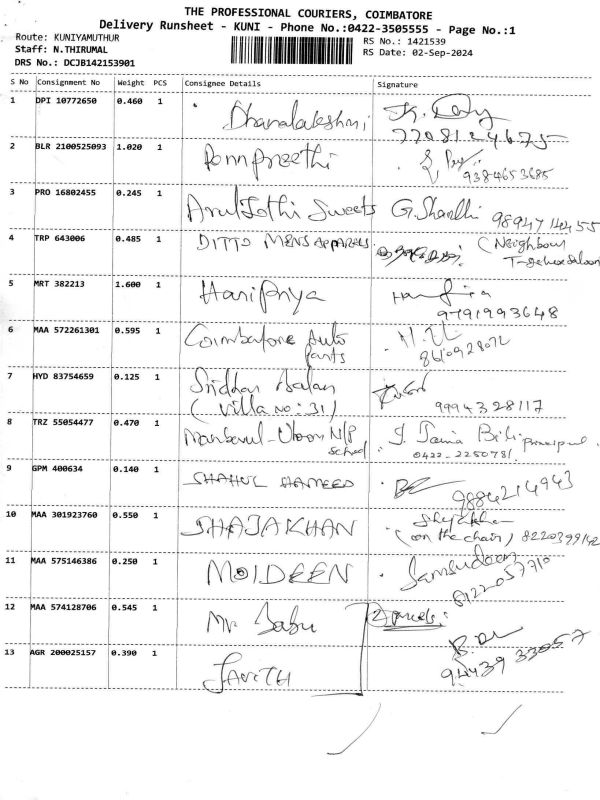 THE PROFESSIONAL COURIERS, COIMBATORE
Delivery Runsheet - KUNI - Phone No.:0422-3505555 - Page No.:1
Route: KUNIYAMUTHUR
RS No.: 1421539
Staff: N.THIRUMAL
RS Date: 02-Sep-2024
DRS No.: DCJB142153901
S No Consignment No Weight PCS Consignee Details Signature
1 DPI 10772650 0.460 1 Dhanalakshmi
2 BLR 2100525093 1.020 1 Ponnpreethi
9384653685
3 PRO 16802455 0.245 1 ArulJothi Sweets
9894714455
4 TRP 643006 0.485 1 DITTO MENS APPARELS (Neighbour
5 MRT 382213 1.600 1 Haripriya
9791993648
6 MAA 572261301 0.595 1 Coimbatore Auto
Parts 8610928072
7 HYD 83754659 0.125 1 Sridhar Balan
(Villa no: 31) 9994328117
8 TRZ 55054477 0.470 1 N/P
School 0422-2250781
9 GPM 400634 0.140 1 SHAHUL HAMEED
9884214943
10 MAA 301923760 0.550 1 SHAJAKHAN
(on the chair) 8220399142
11 MAA 575146386 0.250 1 MOIDEEN Samsudeen
8122057710
12 MAA 574128706 0.545 1 Mr Babu 2 parcels:
13 AGR 200025157 0.390 1 JAVITH
94439 33057